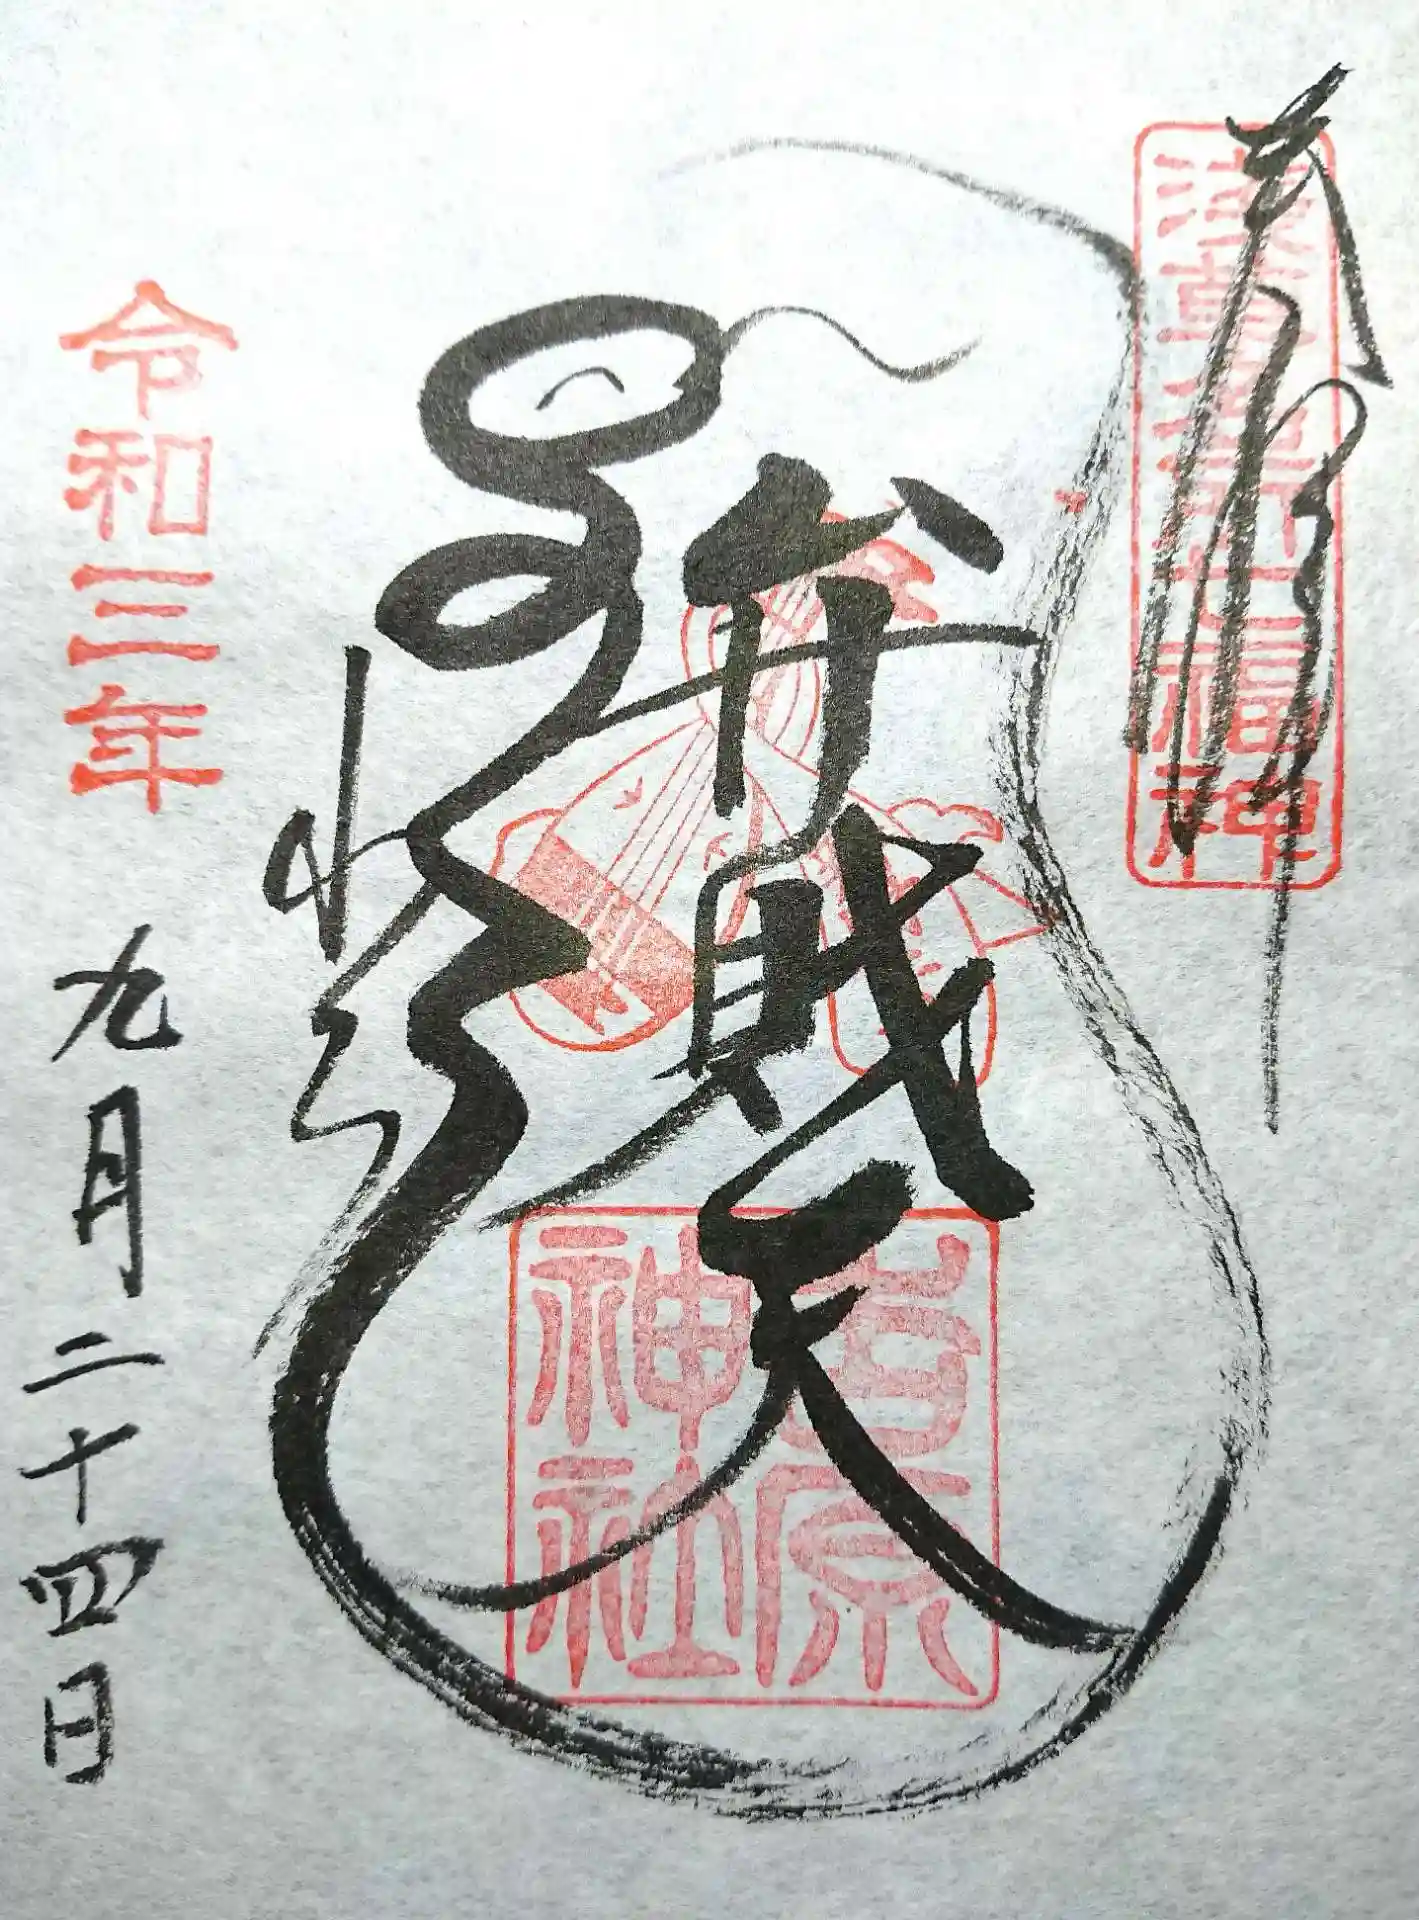 奉拝
浅草名所七福神
弁財天
吉原
神社
令和三年
九月二十四日